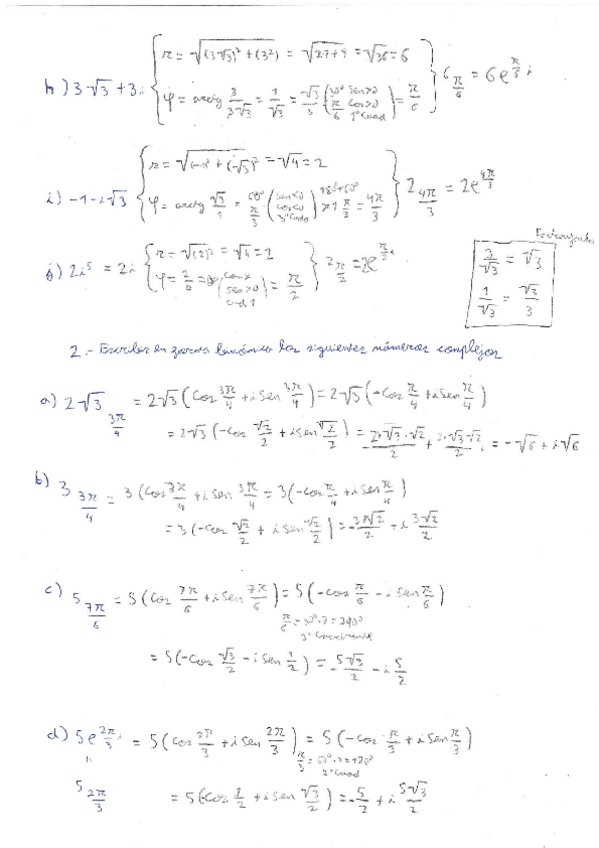 h) 3√3 + 3i { r = √((3√3)² + (3²)) = √(27+9) = √36 = 6
φ = arctg 3/3√3 = 1/√3 = √3/3 (30° π/6 sen>0 cos>0 1°Cuad) = π/6 } 6 π/6 = 6e^(π/6 i)
i) -1-i√3 { r = √(-1² + (-√3)²) = √4 = 2
φ = arctg √3/1 = 60° π/3 (sen<0 cos<0 3°Cuad) 180+60° π+ π/3 = 4π/3 } 2 4π/3 = 2e^(4π/3)
j) 2i⁵ = 2i { r = √(2)² = √4 = 2
φ = 2/0 = (cosx sen>0 cud 1) = π/2 } 2 π/2 = 2e^(π/2 i)
3/√3 = √3
1/√3 = √3/3
2.- Escribir en forma binómica los siguientes números complejos
a) 2√3 3π/4 = 2√3 (Cos 3π/4 + i Sen 3π/4) = 2√3 (-Cos π/4 + i Sen π/4)
= 2√3 (-Cos √2/2 + i sen √2/2) = -2·√3·√2/2 + 2·√3·√2/2 i = -√6 + i√6
b) 3 3π/4 = 3 (Cos 3π/4 + i Sen 3π/4 = 3(-Cos π/4 + i Sen π/4)
= 3(-Cos √2/2 + i Sen √2/2) = -3√2/2 + i 3√2/2
c) 5 7π/6 = 5 (Cos 7π/6 + i Sen 7π/6) = 5 (-cos π/6 - i Sen π/6)
π/6 = 30°·7 = 210°
3° Cuadrante
= 5(-Cos √3/2 - i Sen 1/2) = -5√3/2 - i 5/2
d) 5e^(2π/3 i) = 5 (Cos 2π/3 + i Sen 2π/3) = 5 (-Cos π/3 + i Sen π/3)
π/3 = 60°·2 = 120°
2° Cuad
5 2π/3 = 5(-Cos 1/2 + i Sen √3/2) = -5/2 + i 5√3/2